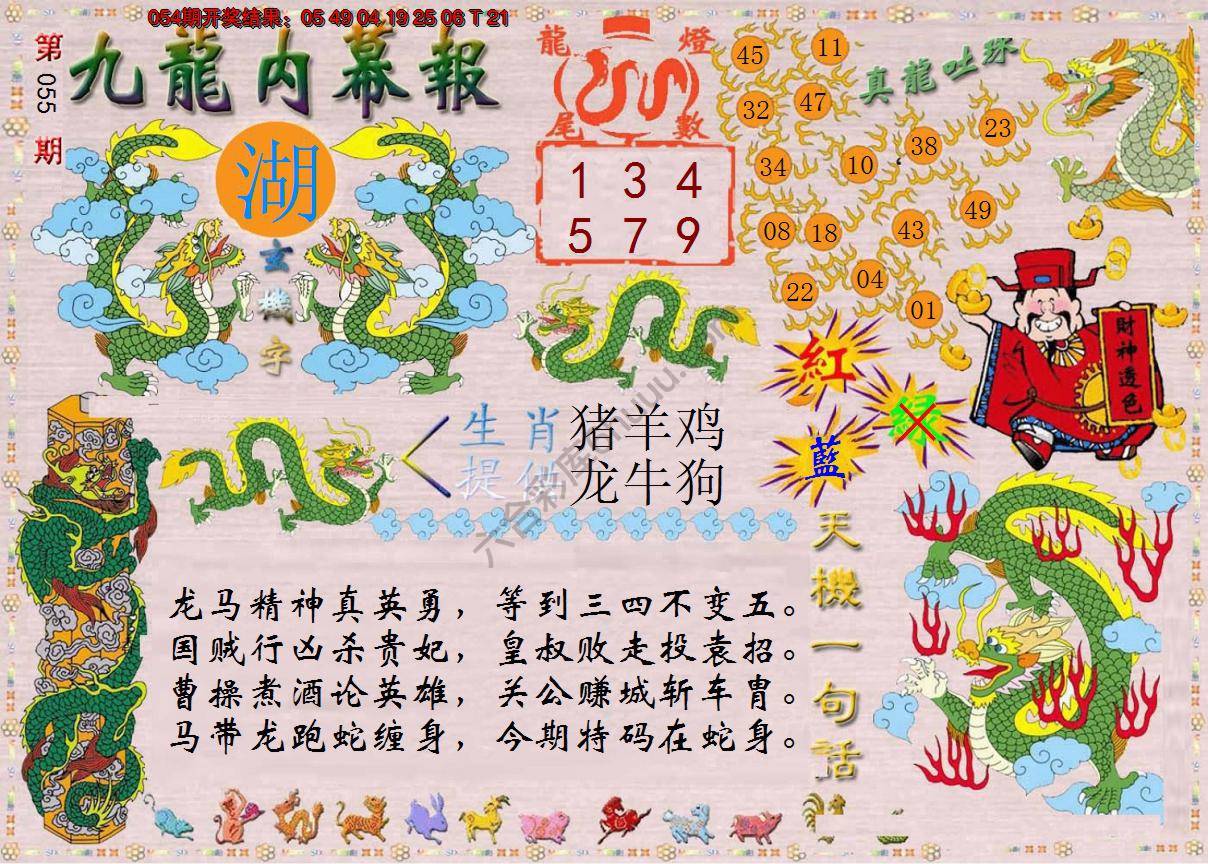 054期开奖结果：05 49 04 19 25 06 T 21
第055期
九龍内幕報
湖
玄機字
龍燈
尾數
1 3 4
5 7 9
真龍吐珠
45 11
32 47
34 10 38 23
08 18 43 49
22 04 01
財神透色
紅
绿
藍
生肖 猪羊鸡
提供 龙牛狗
天機一句話
龙马精神真英勇，等到三四不变五。
国贼行凶杀贵妃，皇叔败走投袁招。
曹操煮酒论英雄，关公赚城斩车胄。
马带龙跑蛇缠身，今期特码在蛇身。